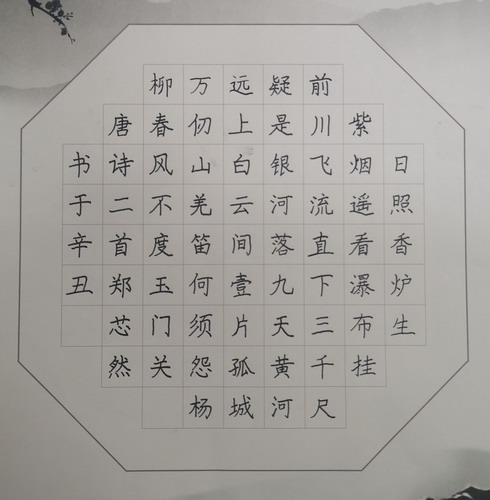 日照香炉生
紫烟遥看瀑布挂
前川飞流直下三千尺
疑是银河落九天黄河
远上白云间壹片孤城
万仞山羌笛何须怨杨
柳春风不度玉门关
唐诗二首郑芯然
书于辛丑